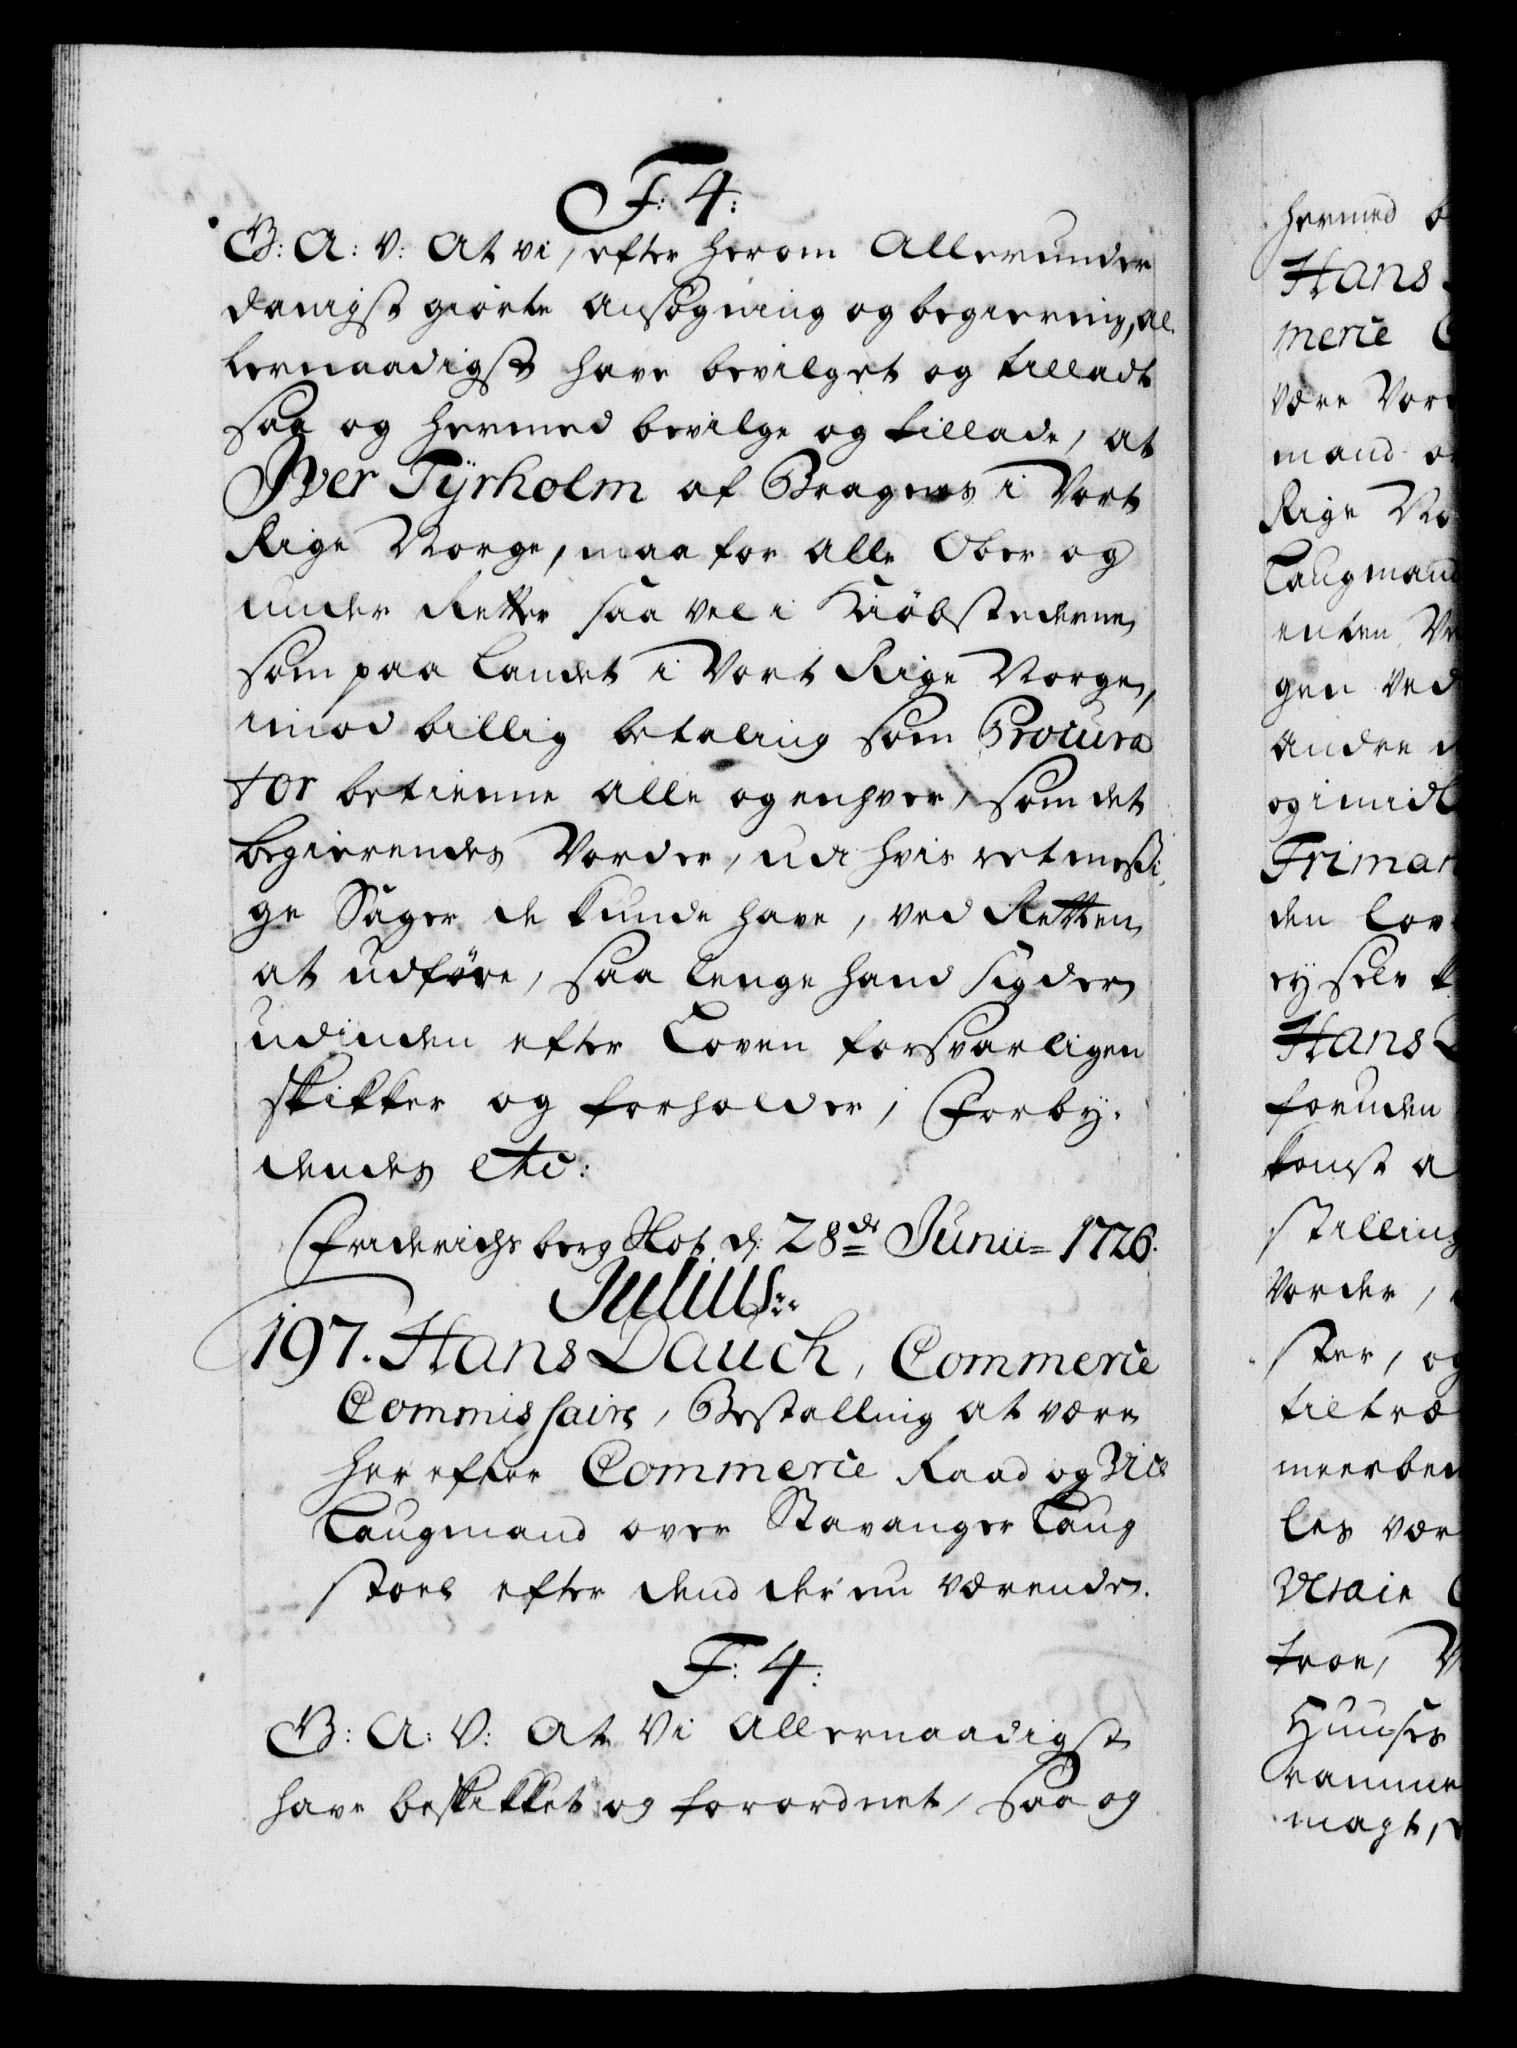 F: 4:
G: A: V: At vi, efter herom Allerunder
danigst giorte Ansøgning og begiering, al
lernaadigst have bevilget og tilladt
saa og hermed bevilge og tillade, at
Iver Tyrholm af Bragnes i Vort
Rige Norge, maa for alle Ober og
under Retter saa vel i Kiöbstederne
som paa Landet i Vort Rige Norge,
imod billig betaling som Procura
tor betienne alle og enhver, som det
begierendes Vorder, udi hvis retmessi
ge Sager de kunde have, ved Retten
at udföre, saa lenge hand sig der
udinden efter Loven forsvarligen
skikker og forholder, Forby-
dendes etc:
Friderichsberg Slot d: 28de Junii 1726.
Julius
197. Hans Dauch, Commerce
Commissaire, Bestalling at være
her efter Commerce Raad og Vice
Laugmand over Stavanger Laug
stoel efter dend der nu værende.
F: 4:
G: A: V: At Vi Allernaadigst
have beskikket og forordnet, saa og
hermed
Hans
merce
være Vor
mand
Rige No
Laugmand
enten
gen ved
andre
og imidl
Friman
den lov
ej selv
Hans
foruden
komst a
stilling
Vorder,
ster, og
tiltræ
meerbem
les vær
troe,
Huuses
ramme
magt,